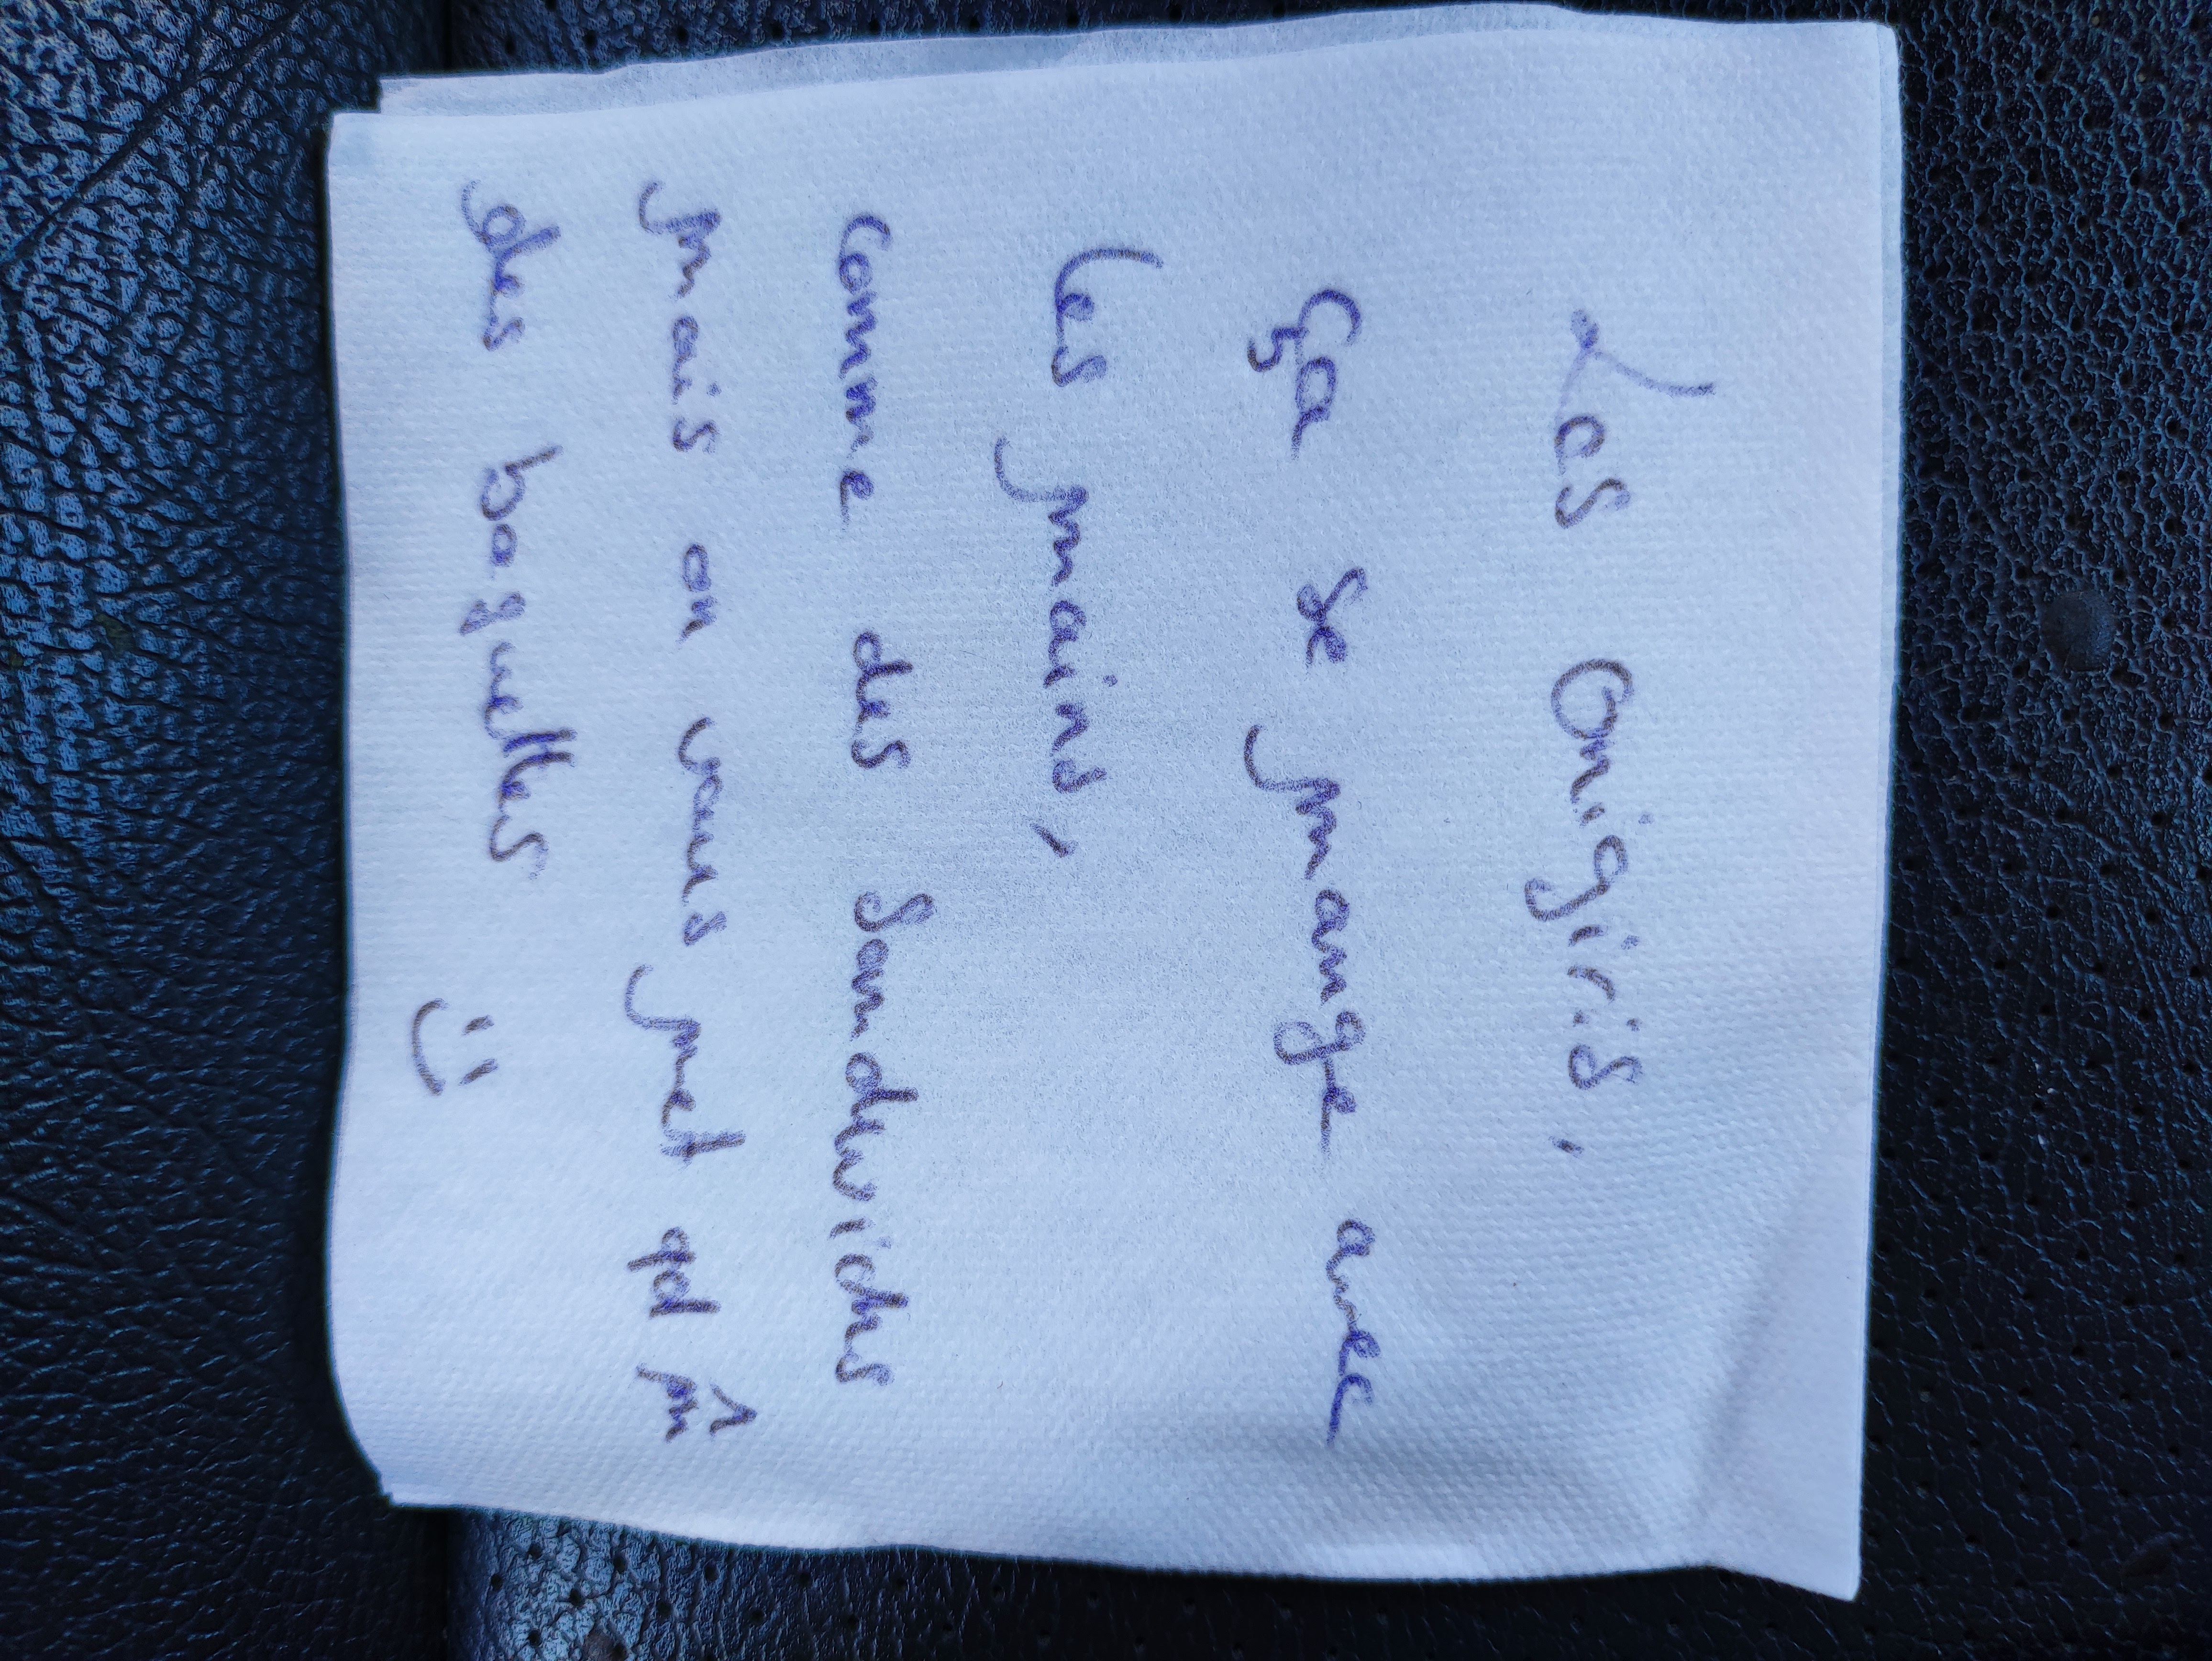 Les Onigiris,
Ça se mange avec
les mains,
comme des sandwichs
mais on vous met qd m̂
des baguettes :)